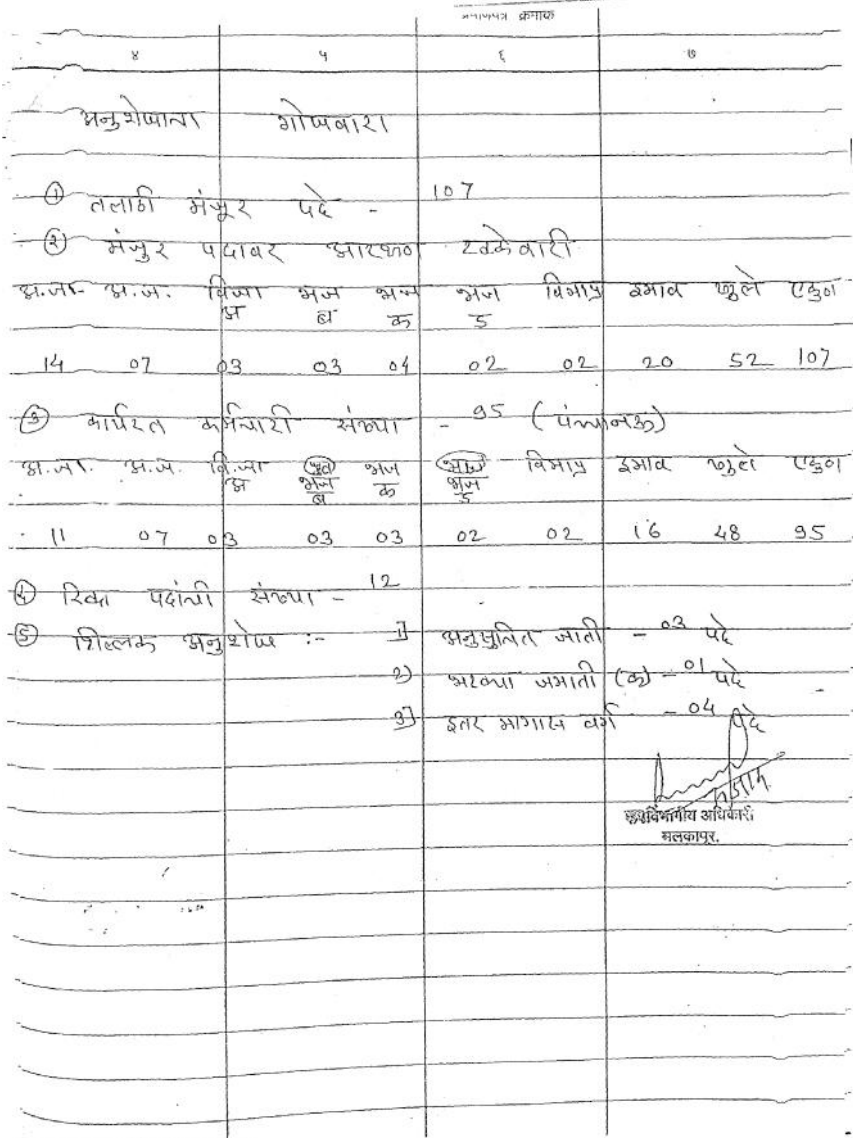 प्रमाणपत्र क्रमांक
४ ५ ६ ७
अनुशेषाचा गोषवारा
① तलाठी मंजूर पदे - 107
② मंजुर पदावर आरक्षण टक्केवारी
अ.जा. अ.ज. विजा भज भज भज विमाप्र इमाव खुले एकुण
अ ब क ड
14 07 03 03 04 02 02 20 52 107
③ कार्यरत कर्मचारी संख्या - 95 (पंच्यानऊ)
अ.जा. अ.ज. वि.जा भज भज भज विमाप्र इमाव खुले एकुण
अ ब क ड
11 07 03 03 03 02 02 16 48 95
④ रिक्त पदांची संख्या - 12
⑤ शिल्लक अनुशेष :- 1] अनुसुचित जाती - 03 पदे
2) भटक्या जमाती (क) - 01 पदे
3] इतर मागास वर्ग - 04 पदे
उपविभागीय अधिकारी
मलकापूर.